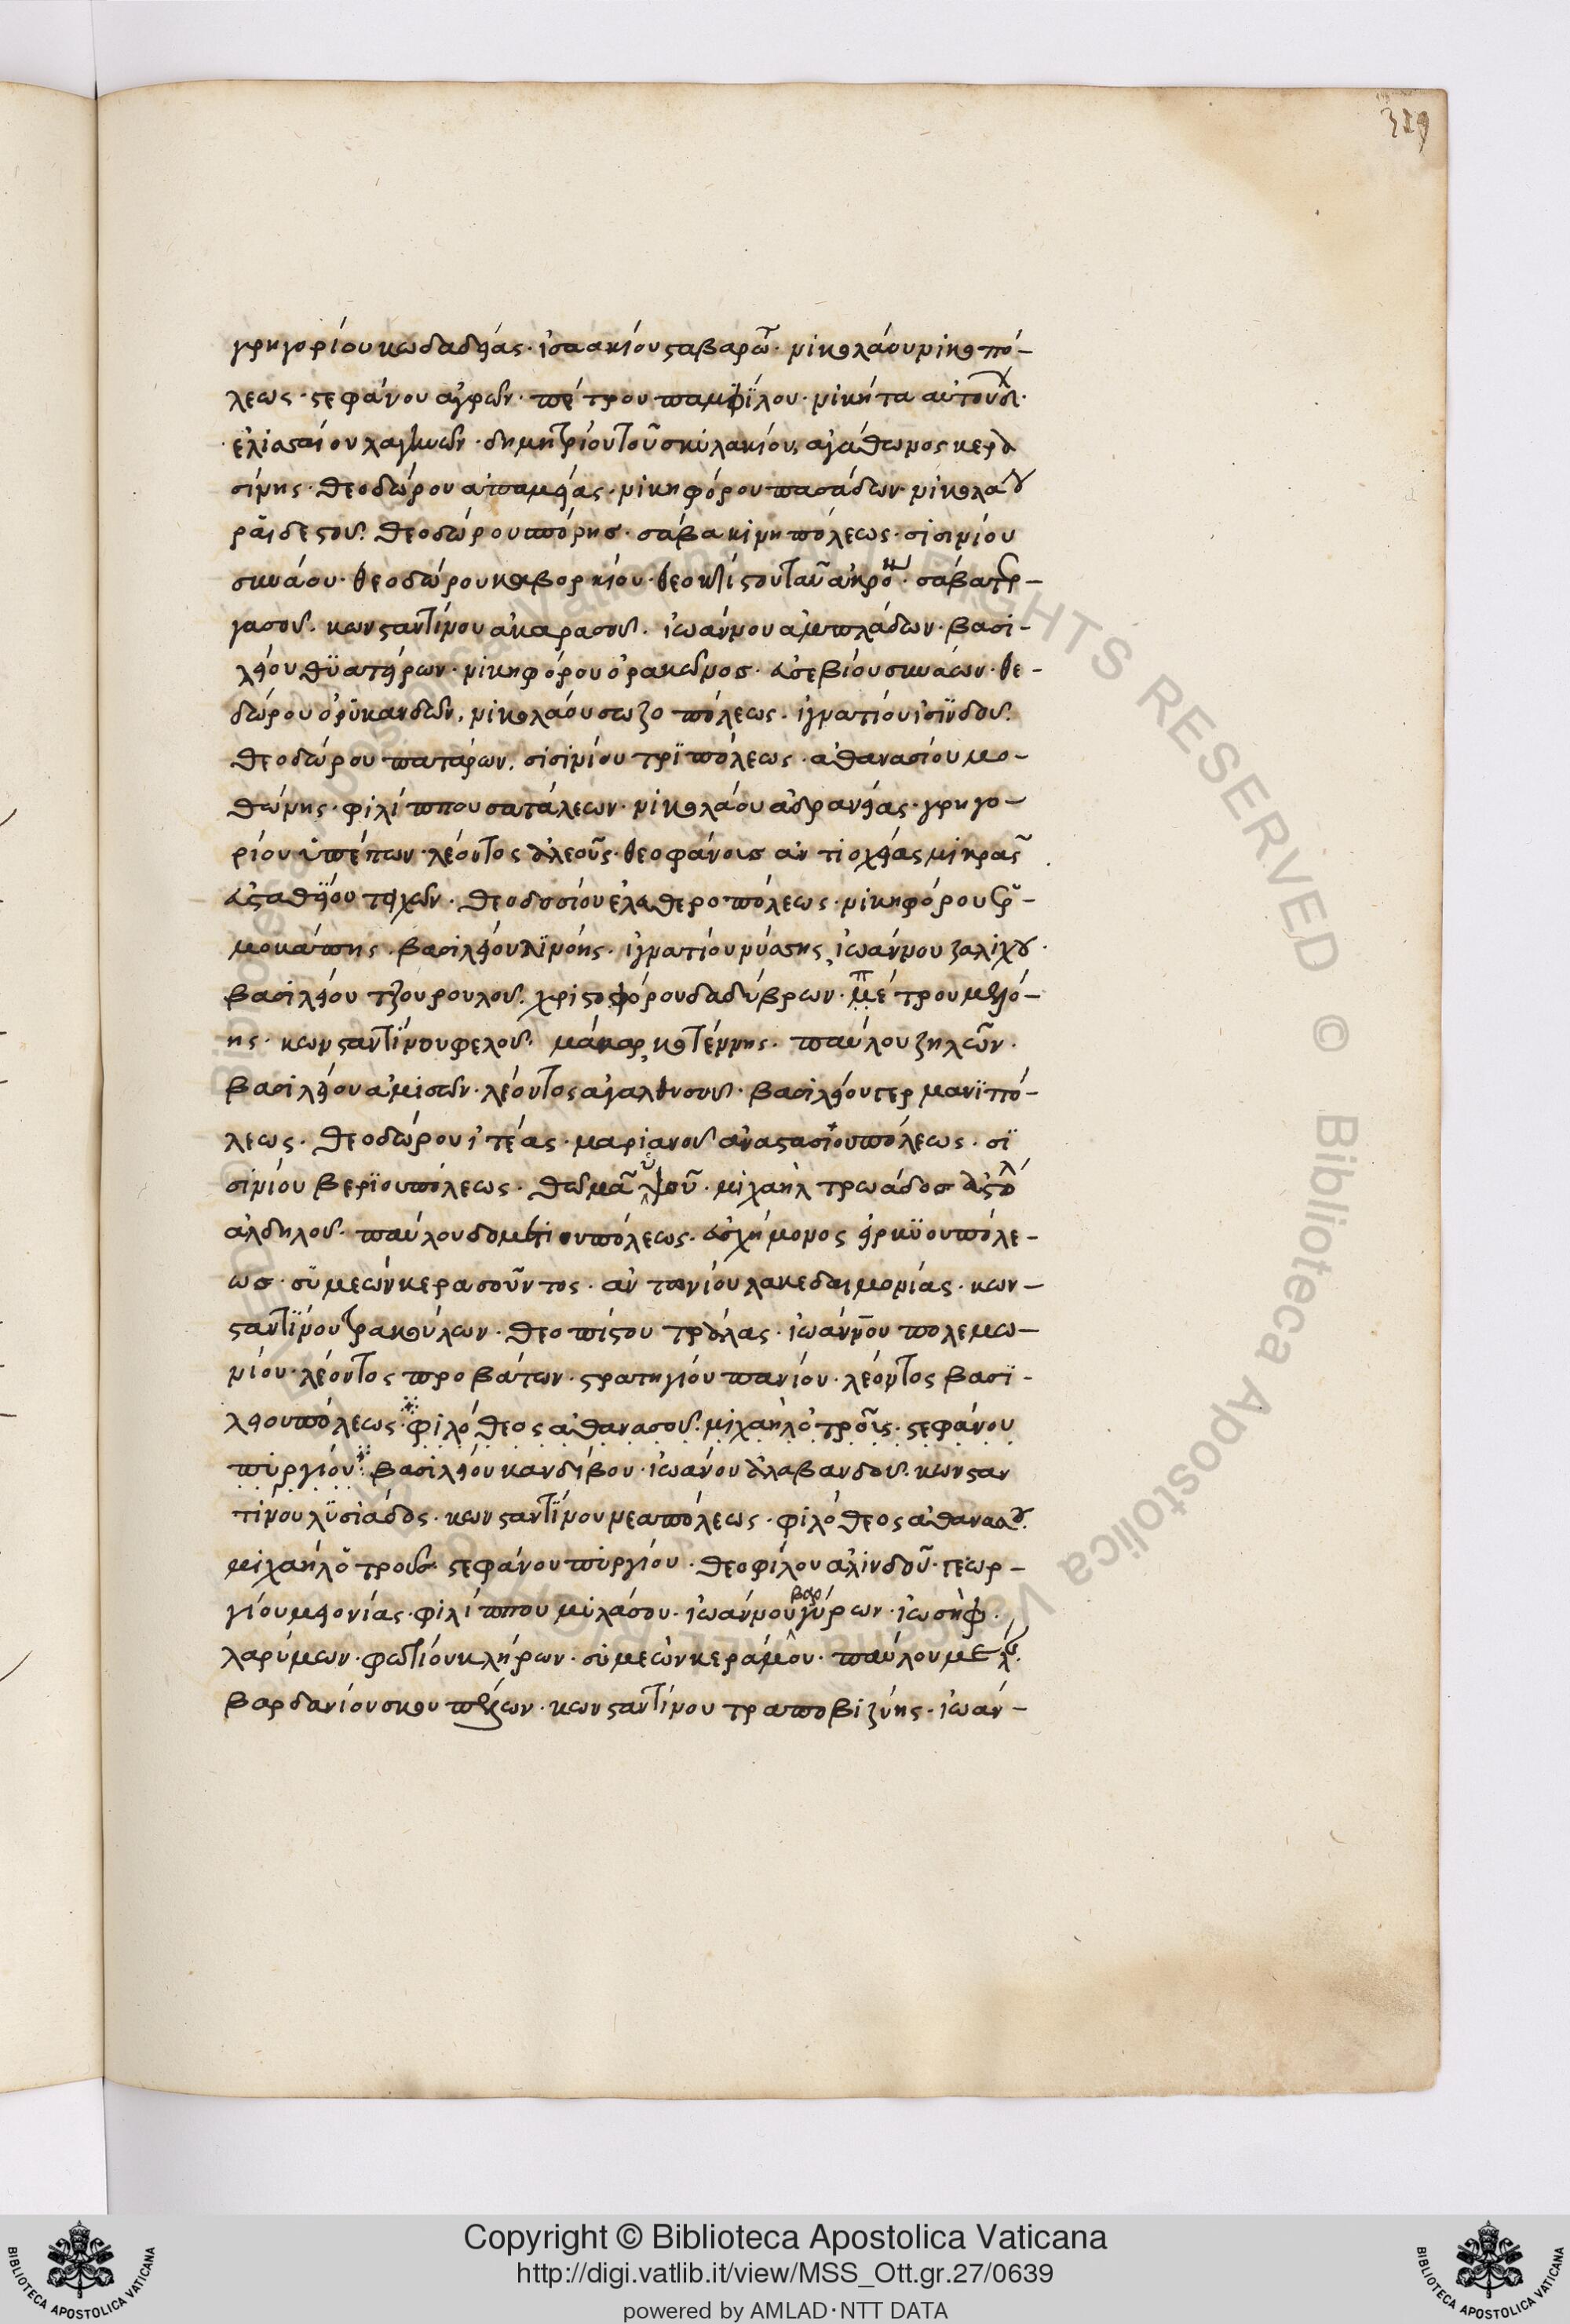 319
γρηγορίου κωδαδείας· ἰσαακίου σταβαρῶ· νικολάου νικοπό-
λεως· στεφάνου ἀγρῶν· πέτρου παμφίλου· νικήτα αὐτούδ·
δημητρίου τοῦ σκυλακίου, ἀγάθωνος κερα
σίνης· θεοδώρου ἀπαμείας· νικηφόρου πασάδων· νικολάου
θεοδώρου πόρης· σάβα κιμηπόλεως· σισινίου
συνάου· θεοδώρου κοβορκίου·
γασοῦ· κωνσταντίνου ἀκαρασοῦ· ἰωάννου ἀμπλάδων· βασι-
λείου θϋατήρων· νικηφόρου ὀρακῶνος· εὐσεβίου συνάων· θε-
δώρου ὀρϋκανδῶν, νικολάου σωζοπόλεως· ἰγνατίου ἰσϊνδοῦ.
θεοδώρου πατάρων. σισινίου τρϊπόλεως· ἀθανασίου μο-
θώνης· φιλίππου σατάλεων· νικολάου ἀδρανείας· γρηγο-
ρίου ὑπέπων· λέοντος ἀλεοῦς· θεοφάνους ἀντιοχείας μικρᾶς
εὐσταθείου τειχῶν· θεοδοσίου ἐλευθεροπόλεως· νικηφόρου
μοκάπης· βασιλείου λϊμόης· ἰγνατίου νύσσης, ἰωάννου ζαλίχου·
βασιλείου τζουρουλοῦ. χριστοφόρου δαδύβρων· πέτρου
ης· κωνσταντΐνου φελοῦ· μάκαρ κοτέννης· παύλου ζηλῶν·
βασιλείου ἀμισῶν· λέοντος ἀγαλθυσοῦ· βασιλείου γερμανϊπό-
λεως· θεοδώρου ἰτέας· μαριανοῦ ἀναστασιουπόλεως· σϊ
σινίου βερϊουπόλεως· θωμᾶ μιχαὴλ τρωάδος
ἀλδηλοῦ· παύλου δομετιουπόλεως· εὐσχήμονος εἰρκϋουπόλε-
ως· σϋμεὼν κερασοῦντος· ἀντωνίου λακεδαιμονίας· κων-
σταντΐνου τρακούλων· θεοπίστου τρόλας· ἰωάννου πολεμω-
νίου· λέοντος προβάτων· στρατηγίου πανίου· λέοντος βασϊ-
λειουπόλεως· φιλόθεος ἀθανασοῦ. μιχαὴλ ὀτροῖς· στεφάνου
πυργίου· βασιλείου κανδίβου· ἰωάνου ἀλαβανδοῦ. κωνσταν
τίνου λϋσιάδος· κωνσταντΐνου νεαπόλεως· φιλόθεος ἀθανασοῦ.
μιχαὴλ ὀτροῦς στεφάνου πυργίου· θεοφίλου ἀλινδοῦ· γεωρ-
γίου μειονίας· φιλίππου μυλάσου· ἰωάννου βαργύρων· ἰωσὴφ·
λαρύμων· φωτίου κλήρων· συμεὼν κεράμου· παύλου
βαρδανίου σκουπέζων· κωνσταντίνου τραποβιζύης· ἰωάν-
Copyright © Biblioteca Apostolica Vaticana
http://digi.vatlib.it/view/MSS_Ott.gr.27/0639
powered by AMLAD·NTT DATA